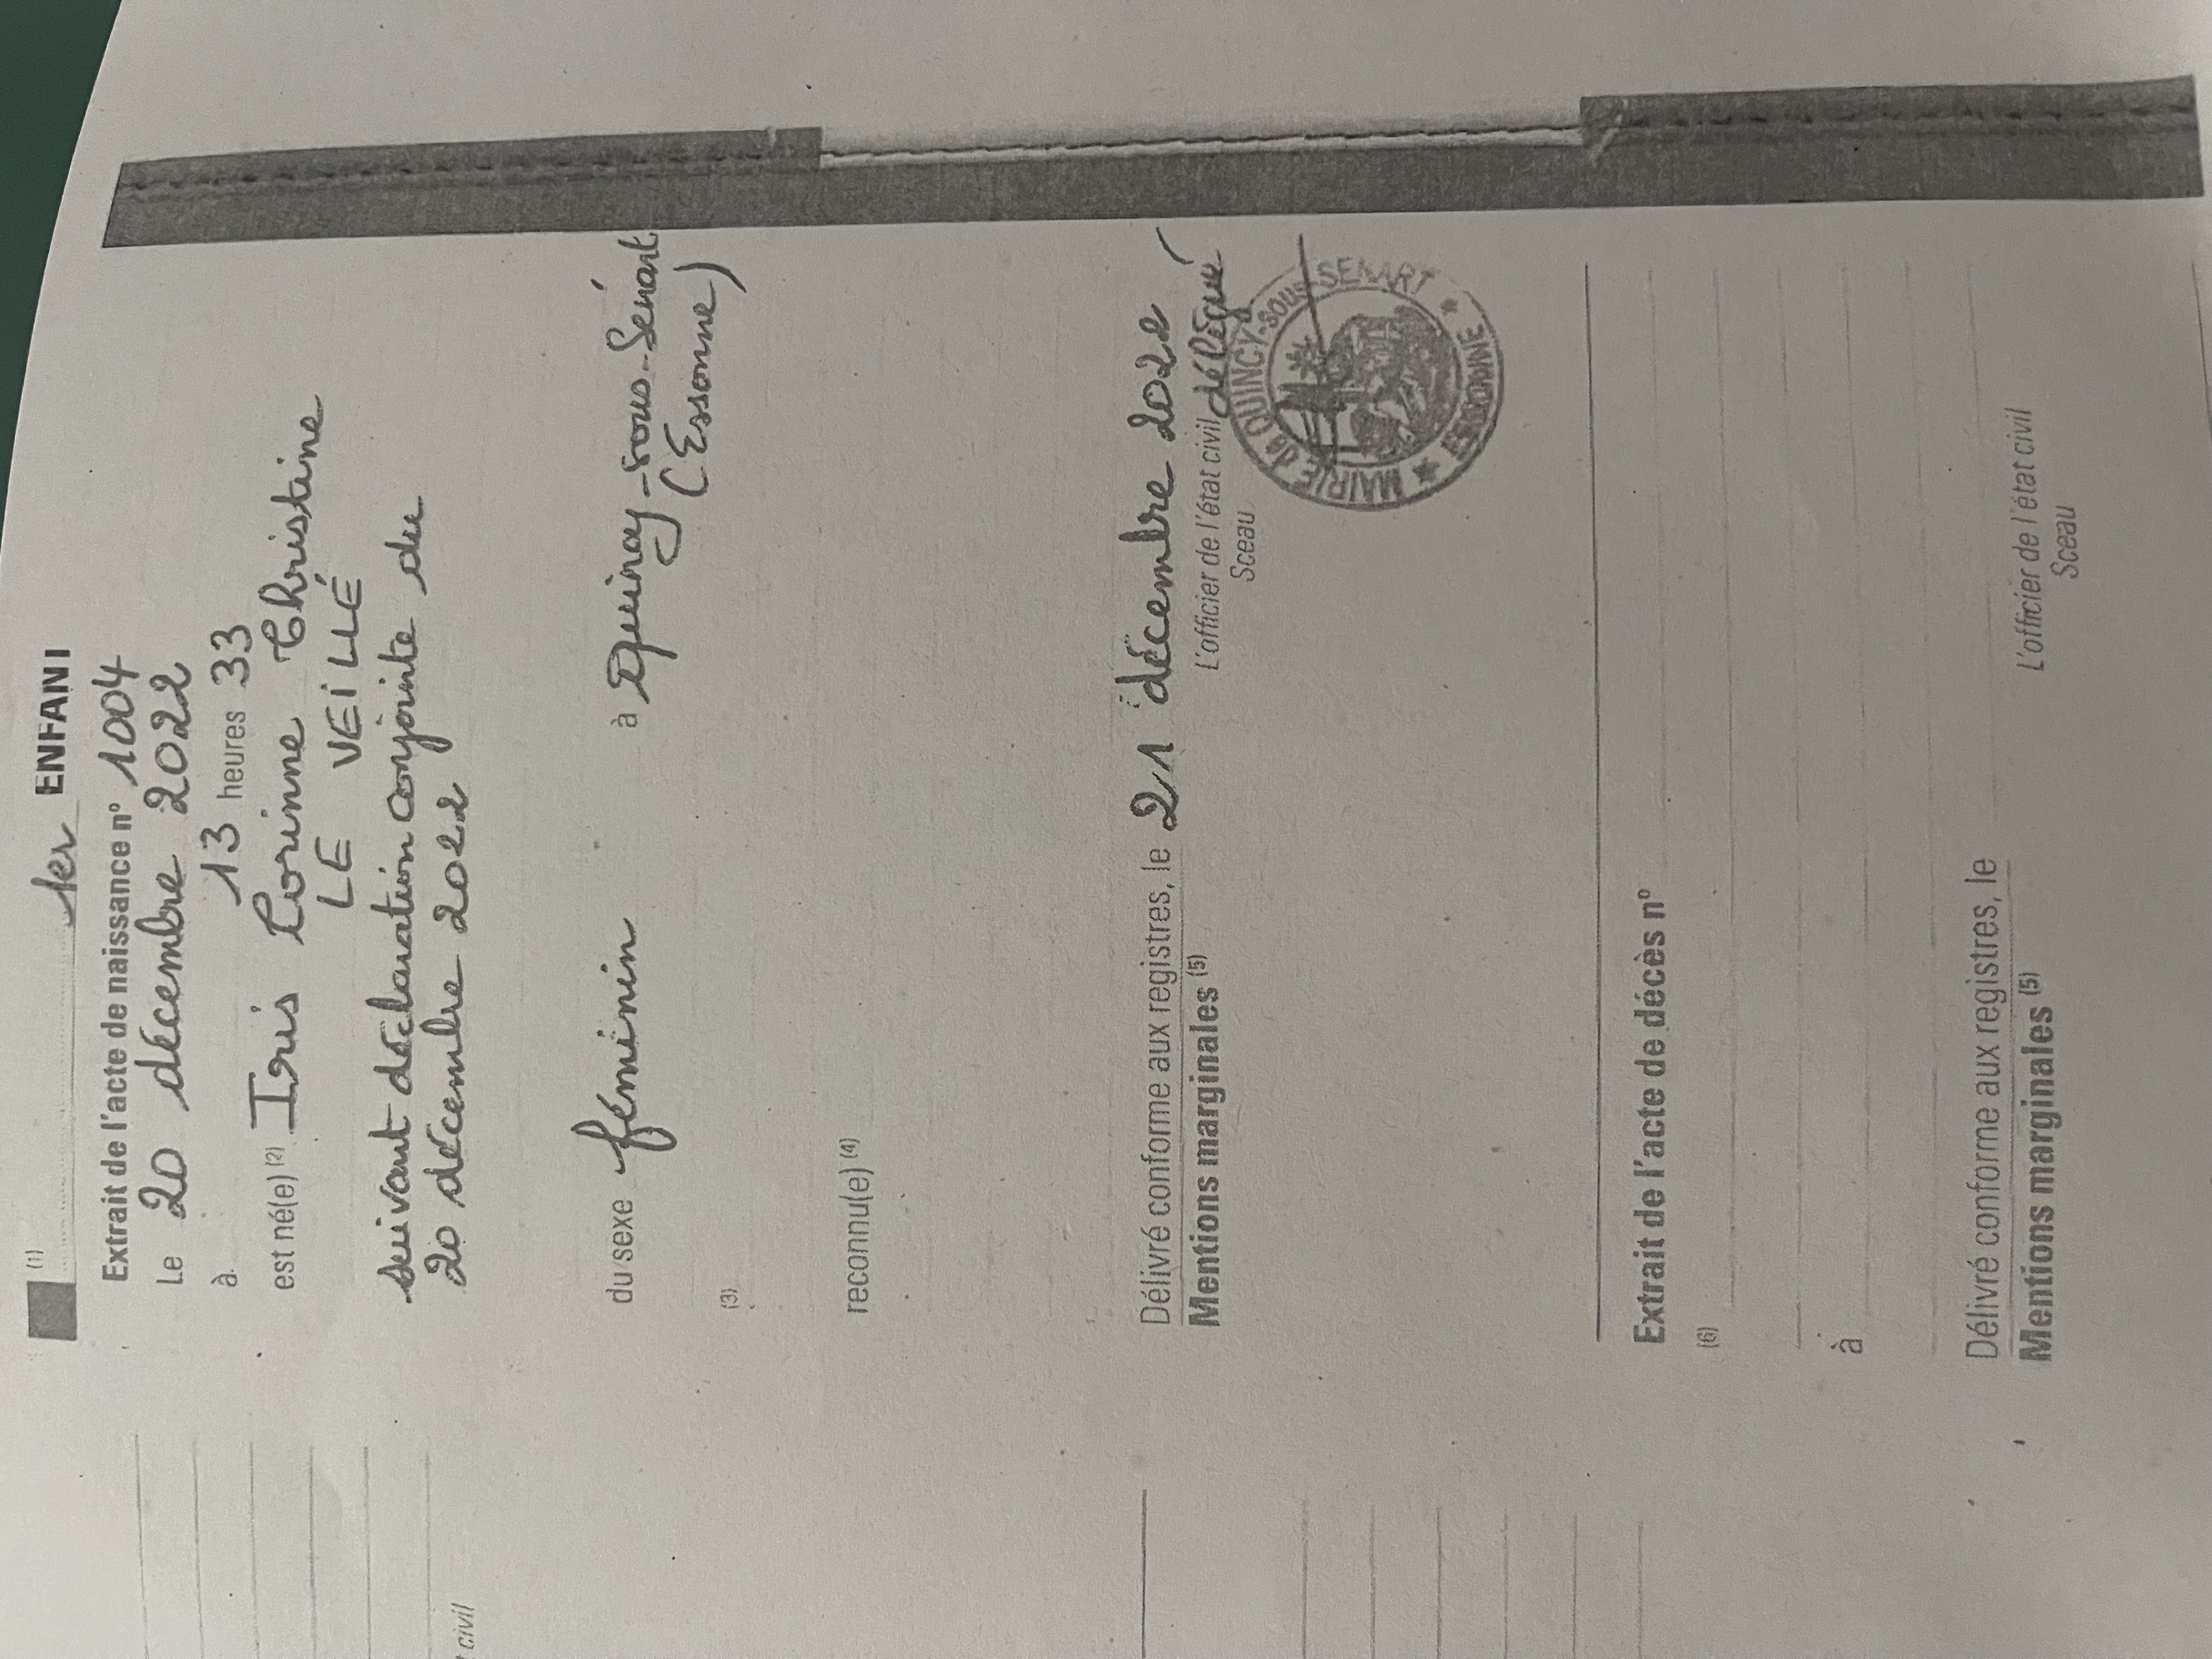 (1) 1er ENFANT
Extrait de l'acte de naissance n° 1004
Le 20 décembre 2022
à 13 heures 33
est né(e) (2) Iris Corinne Christine
LE VEILLÉ
suivant déclaration conjointe du
20 décembre 2022
du sexe féminin à Quincy-sous-Sénart
(Essonne)
(3)
reconnu(e) (4)
Délivré conforme aux registres, le 21 décembre 2022
Mentions marginales (5) L'officier de l'état civil délégué
Sceau
MAIRIE de QUINCY-sous-SENART
★ ESSONNE ★
Extrait de l'acte de décès n°
(6)
à
Délivré conforme aux registres, le
Mentions marginales (5) L'officier de l'état civil
Sceau
civil